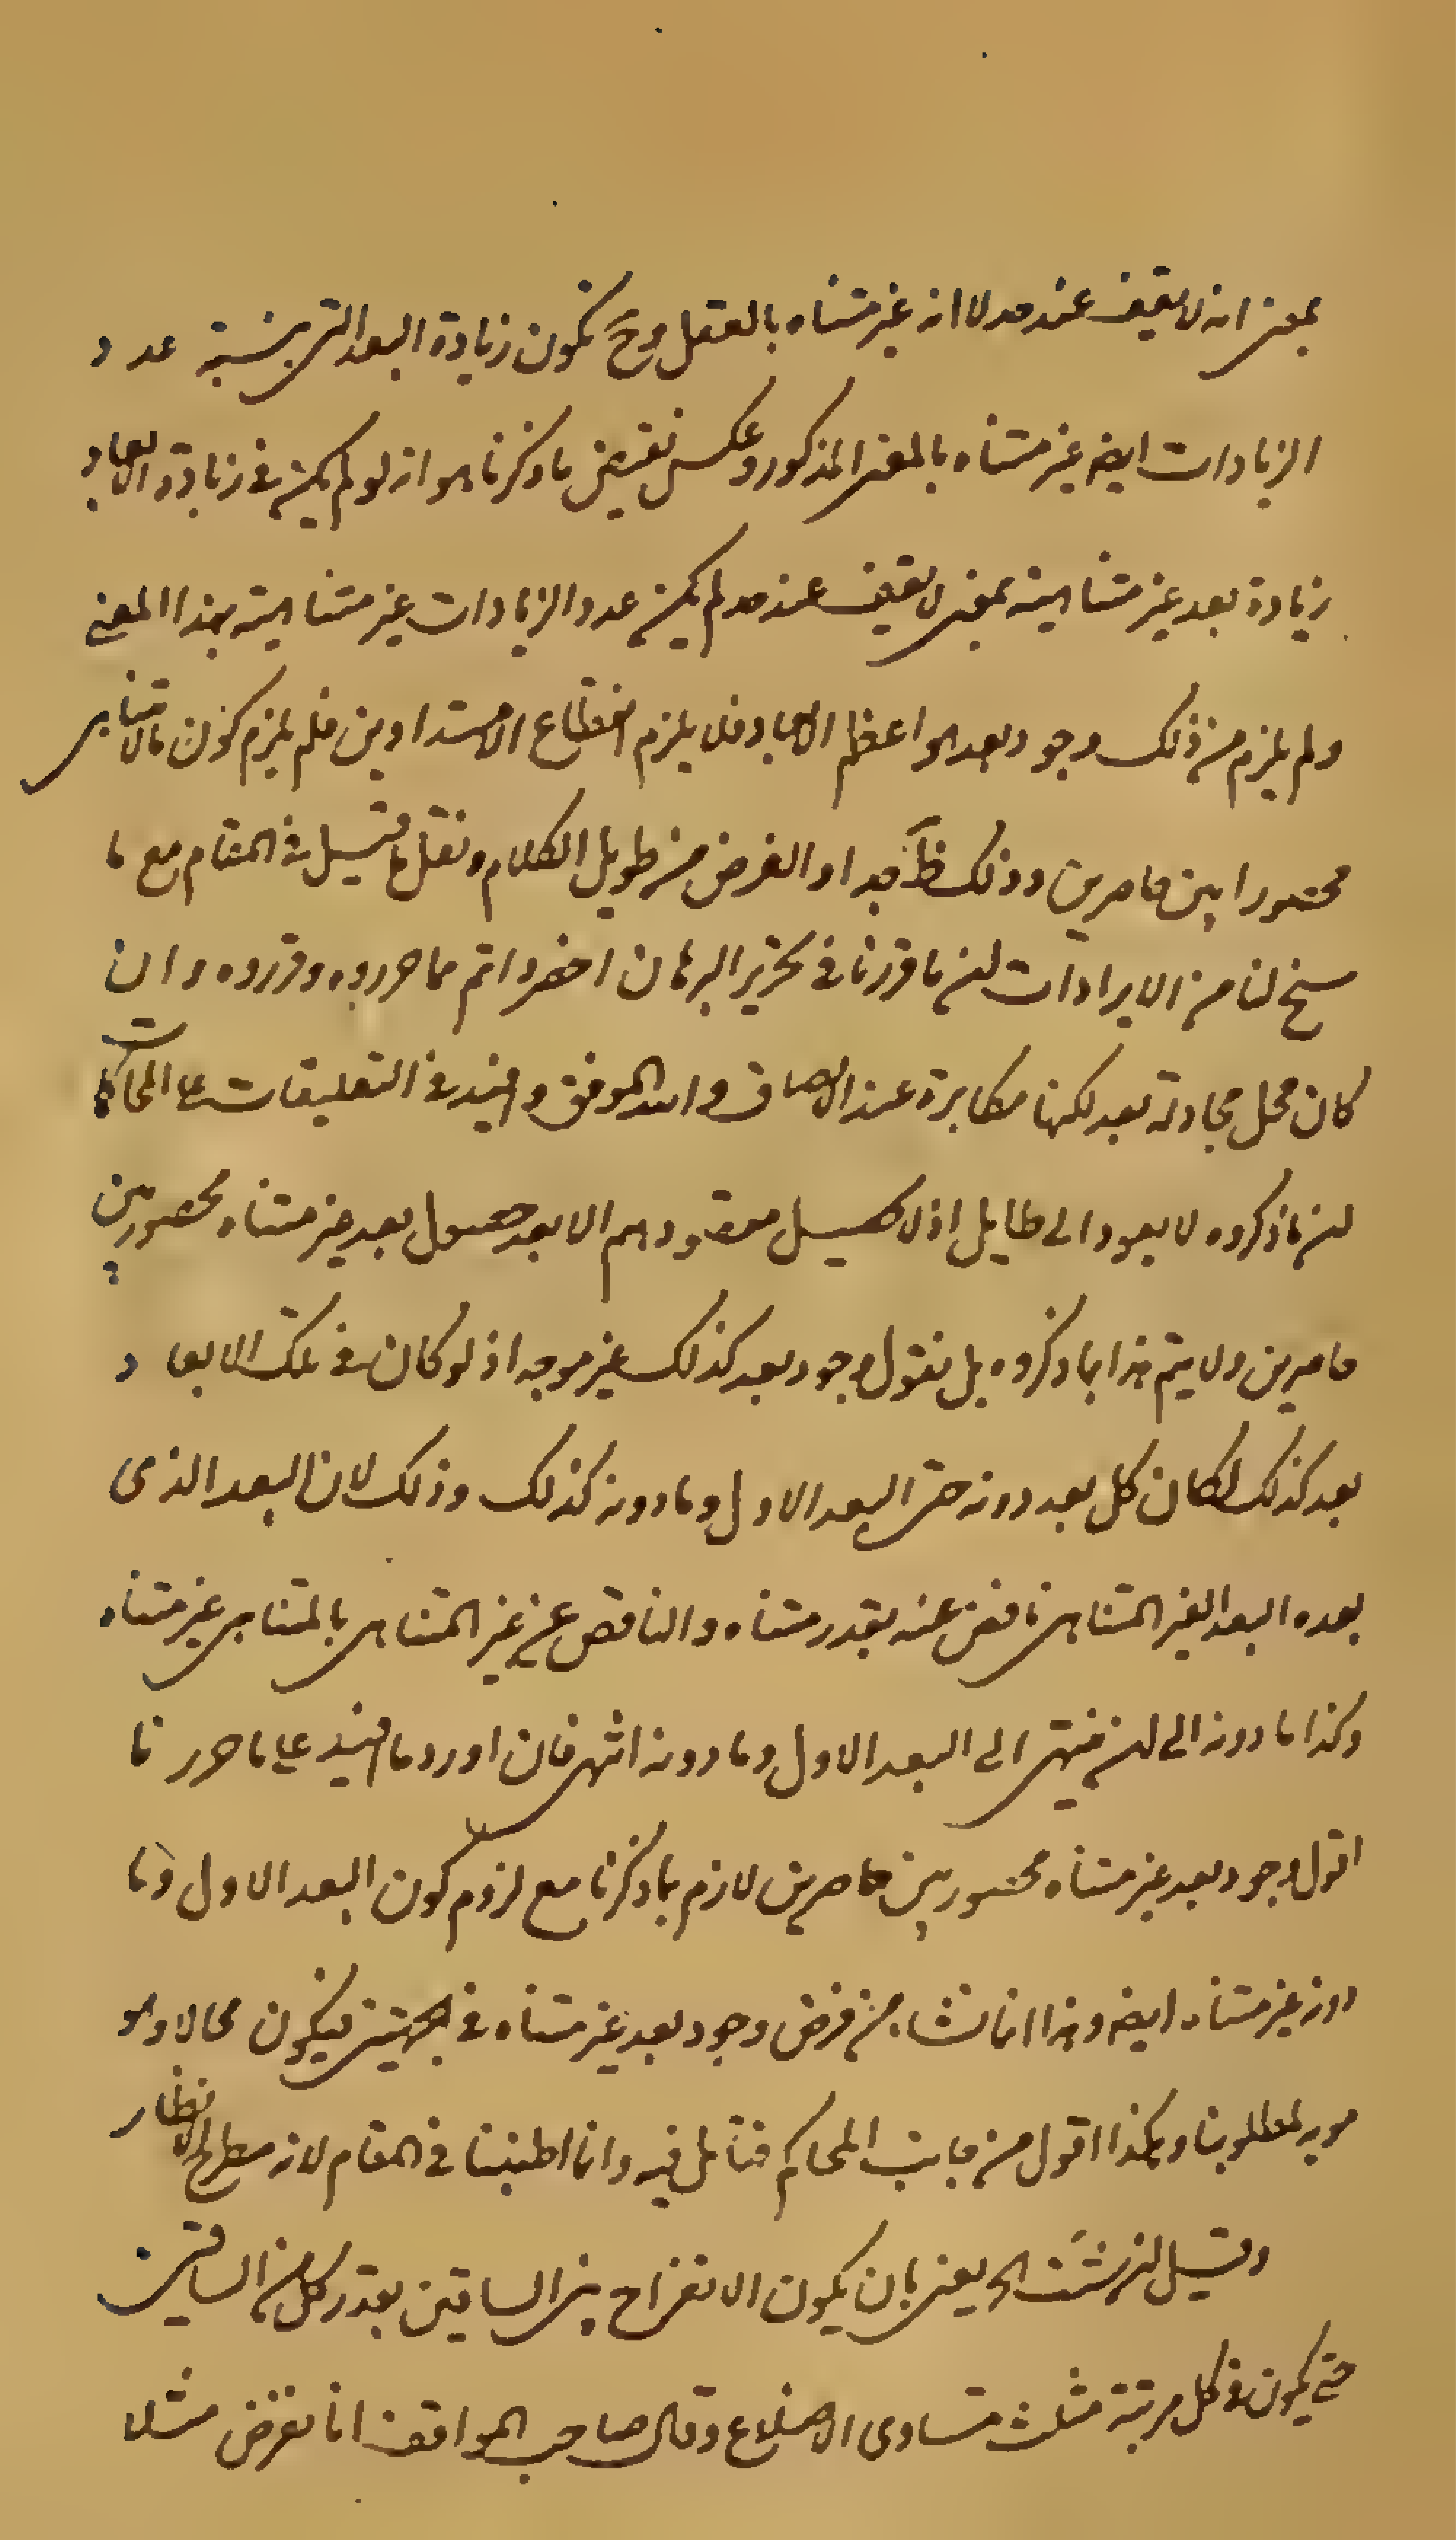 بمعنى انه لا يقف عند حد لا انه غير متناه بالفعل وح تكون زيادة البعد التى بنسبة عدد
الزيادات ايضا غير متناه بالمعنى المذكور وعكس نقيض ما ذكرنا هو انه لو لم يكن فى زيادة الابعاد
زيادة بعد غير متناهية بمعنى لا يقف عند حد لم يكن عدد الزيادات غير متناهية بهذا المعنى
ولم يلزم من ذلك وجود بعد هو اعظم الابعاد فلا يلزم انقطاع الامتدادين فلم يلزم كون مالا يتناهى
محصورا بين حاصرين وذلك ظ جدا و الغرض من طويل الكلام ونقل ما قيل فى المقام مع ما
سنح لنا من الايرادات ان ما قررنا فى تحرير البرهان اخصر واتم مما حرروه وقرروه وان
كان محل مجادلة بعد لكنها مكابرة عند الانصاف والله الموفق وافيد فى التعليقات على المحاكمات
ان ما ذكروه لا يعود الى طايل اذ لا يحصل مقصودهم الا بعد حصول بعد غير متناه محصور بين
حاصرين ولا يتم هذا بما ذكروه بل نقول وجود بعد كذلك غير موجه اذ لو كان فى تلك الابعاد
بعد كذلك لكان كل بعد دونه حتى البعد الاول وما دونه كذلك وذلك لان البعد الذى
بعده البعد الغير المتناهى ناقص عنه بقدر متناه والناقص عن غير المتناهى بالمتناهى غير متناه
وكذا ما دونه الى ان ينتهى الى البعد الاول وما دونه انتهى فان اورد ما افيد على ما حررنا
اقول وجود بعد غير متناه محصور بين حاصرين لازم بما ذكرنا مع لزوم كون البعد الاول وما
دونه غير متناه ايضا وهذا انما نشاء من فرض وجود بعد غير متناه فى الجهتين فيكون محالا وهو
مويد لمطلوبنا وهكذا اقول من جانب المحاكم فتامل فيه وانما اطنبنا فى المقام لانه مطرح الانظار
وقيل ان شئت الخ يعنى بان يكون الانفراج بين الساقين بقدر كل من الساقين
حتى يكون فى كل مرتبة مثلث متساوى الاضلاع وقال صاحب المواقف انا نفرض مثلا